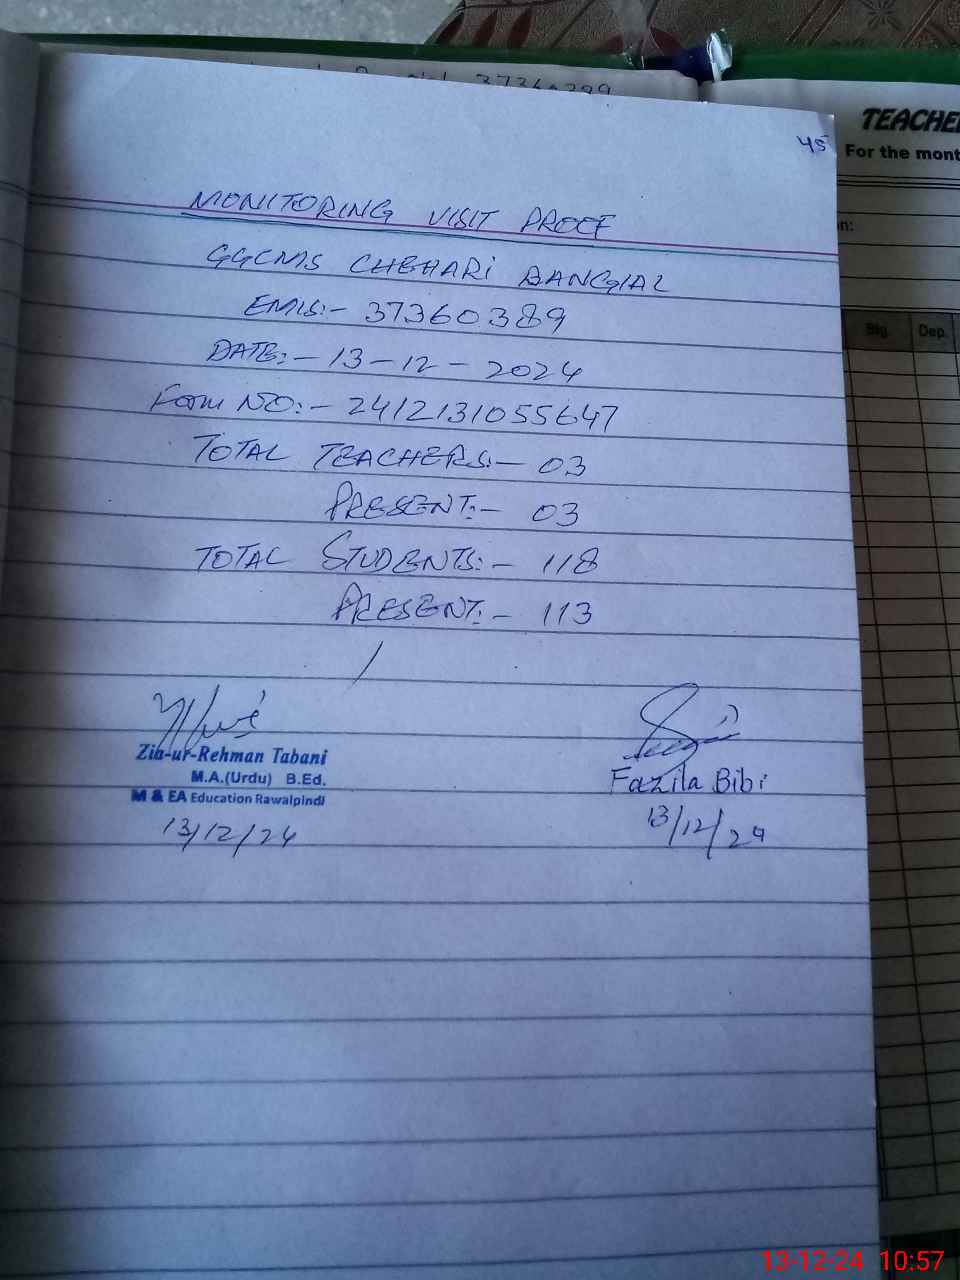 37360389
TEACHE
For the mont
n:
Blg.
Dep.
45
MONITORING VISIT PROOF
GGCMS CHEHARI BANGIAL
EMIS:- 37360389
DATE:- 13-12-2024
Form NO:- 2412131055647
TOTAL TEACHERS:- 03
PRESENT:- 03
TOTAL STUDENTS:- 118
PRESENT:- 113
Zia-ur-Rehman Tabani
M.A.(Urdu) B.Ed.
M & EA Education Rawalpindi
13/12/24
Fazila Bibi
13/12/24
13-12-24 10:57